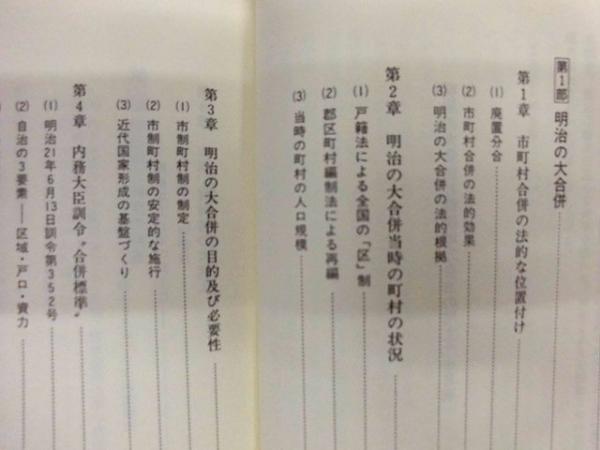 第1部 明治の大合併
第1章 市町村合併の法的な位置付け
(1) 廃置分合
(2) 市町村合併の法的効果
(3) 明治の大合併の法的根拠
第2章 明治の大合併当時の町村の状況
(1) 戸籍法による全国の「区」制
(2) 郡区町村編制法による再編
(3) 当時の町村の人口規模
第3章 明治の大合併の目的及び必要性
(1) 市制町村制の制定
(2) 市制町村制の安定的な施行
(3) 近代国家形成の基盤づくり
第4章 内務大臣訓令“合併標準”
(1) 明治21年6月13日訓令第352号
(2) 自治の3要素――区域・戸口・資力